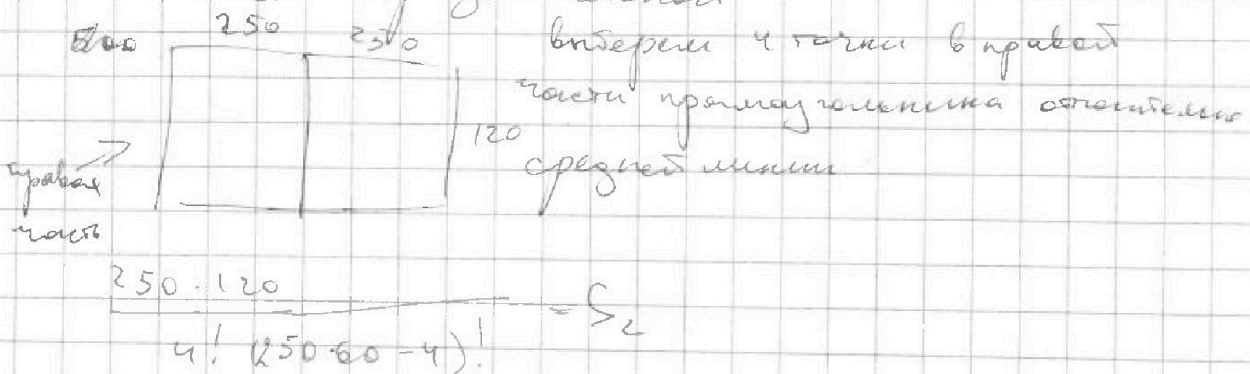 250
250
выберем 4 точки в правой
части прямоугольника относительно
120
средней линии
правая
часть
250 · 120
4! (250·60 - 4)!
= S₂